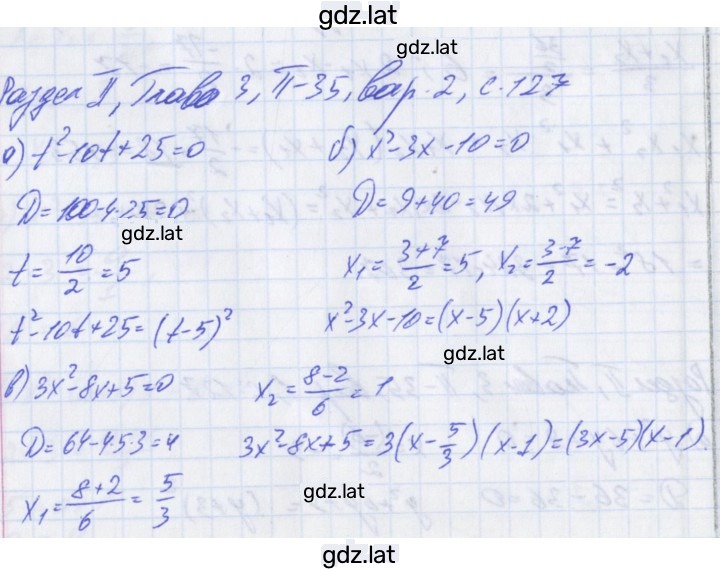 gdz.lat
gdz.lat
Раздел II, Глава 3, П-35, вар. 2, с. 127
а) t²-10t+25=0
D=100-4·25=0
gdz.lat
t=10/2=5
t²-10t+25=(t-5)²
б) x²-3x-10=0
D=9+40=49
x₁=(3+7)/2=5, x₂=(3-7)/2=-2
x²-3x-10=(x-5)(x+2)
gdz.lat
в) 3x²-8x+5=0
D=64-4·5·3=4
x₁=(8+2)/6=5/3
x₂=(8-2)/6=1
3x²-8x+5=3(x-5/3)(x-1)=(3x-5)(x-1).
gdz.lat
gdz.lat